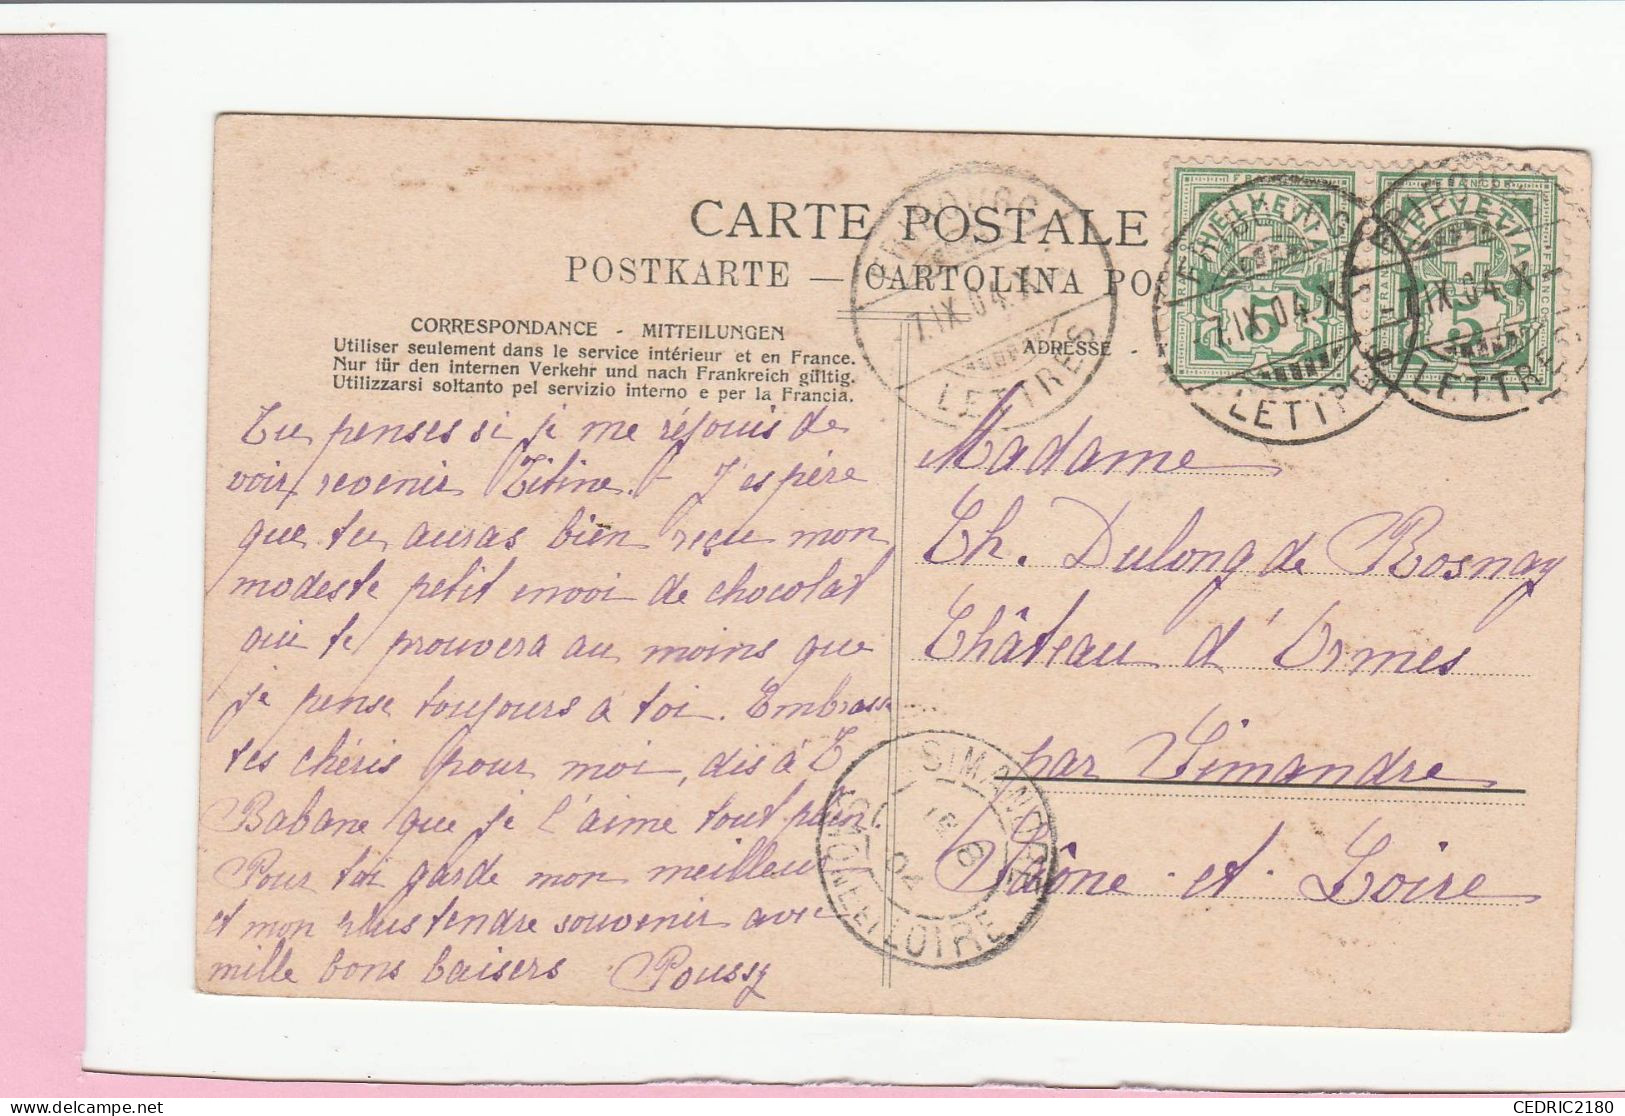 CARTE POSTALE
POSTKARTE — CARTOLINA PO
CORRESPONDANCE - MITTEILUNGEN
Utiliser seulement dans le service intérieur et en France.
Nur für den internen Verkehr und nach Frankreich gültig.
Utilizzarsi soltanto pel servizio interno e per la Francia.
ADRESSE
7.IX.04.X
LETTRES
FRANCO
HELVETIA
5
7.IX.04.X
LETTRES
FRANCO
HELVETIA
5
7.IX.04.X
LETTRES
Tu penses si je me réjouis de
voir revenir Titine. - J'espère
que tu auras bien reçu mon
modeste petit envoi de chocolat
qui te prouvera au moins que
je pense toujours à toi. Embrasse
tes chéris pour moi, dis à T
Babane que je l'aime tout plein.
Pour toi garde mon meilleur
et mon plus tendre souvenir avec
mille bons baisers Poussy
Madame
Ch. Dulong de Rosnay
Château d'Ormes
par Simandre
Saône-et-Loire
SIMANDRE
8
04
SAONE ET LOIRE
CEDRIC2180